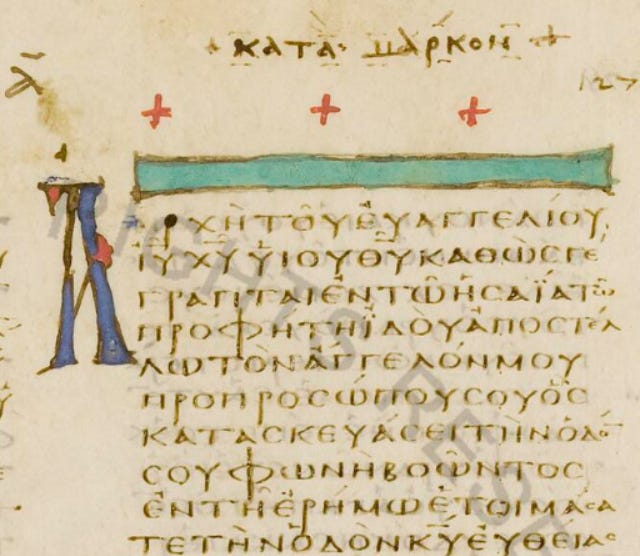 + ΚΑΤΑ ΜΑΡΚΟΝ +
Α̅
+ + +
ΑΡΧΗ ΤΟΥ ΕΥΑΓΓΕΛΙΟΥ
ΙΥ̅ ΧΥ̅ ΥΙΟΥ ΘΥ̅ ΚΑΘΩϹ ΓΕ
ΓΡΑΠΤΑΙ ΕΝ ΤΩ ΗϹΑΪΑ ΤΩ
ΠΡΟΦΗΤΗ ΪΔΟΥ ΑΠΟϹΤΕΛ
ΛΩ ΤΟΝ ΑΓΓΕΛΟΝ ΜΟΥ
ΠΡΟ ΠΡΟϹΩΠΟΥ ϹΟΥ ΟϹ
ΚΑΤΑϹΚΕΥΑϹΕΙ ΤΗΝ ΟΔΟ̅
ϹΟΥ ΦΩΝΗ ΒΟΩΝΤΟϹ
ΕΝ ΤΗ ΕΡΗΜΩ ΕΤΟΙΜΑϹΑ
ΤΕ ΤΗΝ ΟΔΟΝ ΚΥ̅ ΕΥΘΕΙΑϹ
RIGHTS RESE